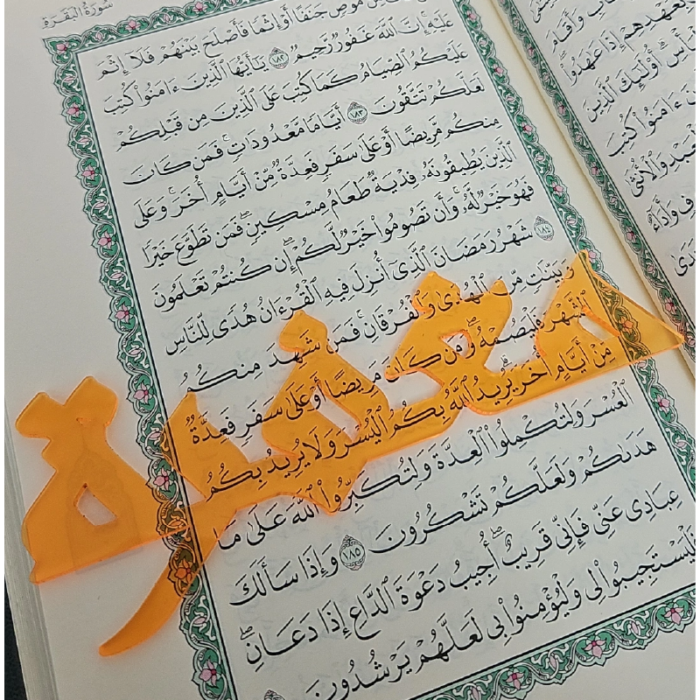 سُورَةُ البَقَرَةِ
مُّوصٍ جَنَفًا أَوْ إِثْمًا فَأَصْلَحَ بَيْنَهُمْ فَلَآ إِثْمَ
عَلَيْهِ إِنَّ ٱللَّهَ غَفُورٌ رَّحِيمٌ ١٨٢ يَٰٓأَيُّهَا ٱلَّذِينَ ءَامَنُوا۟ كُتِبَ
عَلَيْكُمُ ٱلصِّيَامُ كَمَا كُتِبَ عَلَى ٱلَّذِينَ مِن قَبْلِكُمْ
لَعَلَّكُمْ تَتَّقُونَ ١٨٣ أَيَّامًا مَّعْدُودَٰتٍ فَمَن كَانَ
مِنكُم مَّرِيضًا أَوْ عَلَىٰ سَفَرٍ فَعِدَّةٌ مِّنْ أَيَّامٍ أُخَرَ وَعَلَى
ٱلَّذِينَ يُطِيقُونَهُۥ فِدْيَةٌ طَعَامُ مِسْكِينٍ فَمَن تَطَوَّعَ خَيْرًا
فَهُوَ خَيْرٌ لَّهُۥ وَأَن تَصُومُوا۟ خَيْرٌ لَّكُمْ إِن كُنتُمْ تَعْلَمُونَ
١٨٤ شَهْرُ رَمَضَانَ ٱلَّذِىٓ أُنزِلَ فِيهِ ٱلْقُرْءَانُ هُدًى لِّلنَّاسِ
وَبَيِّنَٰتٍ مِّنَ ٱلْهُدَىٰ وَٱلْفُرْقَانِ فَمَن شَهِدَ مِنكُمُ
ٱلشَّهْرَ فَلْيَصُمْهُ وَمَن كَانَ مَرِيضًا أَوْ عَلَىٰ سَفَرٍ فَعِدَّةٌ
مِّنْ أَيَّامٍ أُخَرَ يُرِيدُ ٱللَّهُ بِكُمُ ٱلْيُسْرَ وَلَا يُرِيدُ بِكُمُ
ٱلْعُسْرَ وَلِتُكْمِلُوا۟ ٱلْعِدَّةَ وَلِتُكَبِّرُوا۟ ٱللَّهَ عَلَىٰ مَا
هَدَىٰكُمْ وَلَعَلَّكُمْ تَشْكُرُونَ ١٨٥ وَإِذَا سَأَلَكَ
عِبَادِى عَنِّى فَإِنِّى قَرِيبٌ أُجِيبُ دَعْوَةَ ٱلدَّاعِ إِذَا دَعَانِ
فَلْيَسْتَجِيبُوا۟ لِى وَلْيُؤْمِنُوا۟ بِى لَعَلَّهُمْ يَرْشُدُونَ
مغفرة